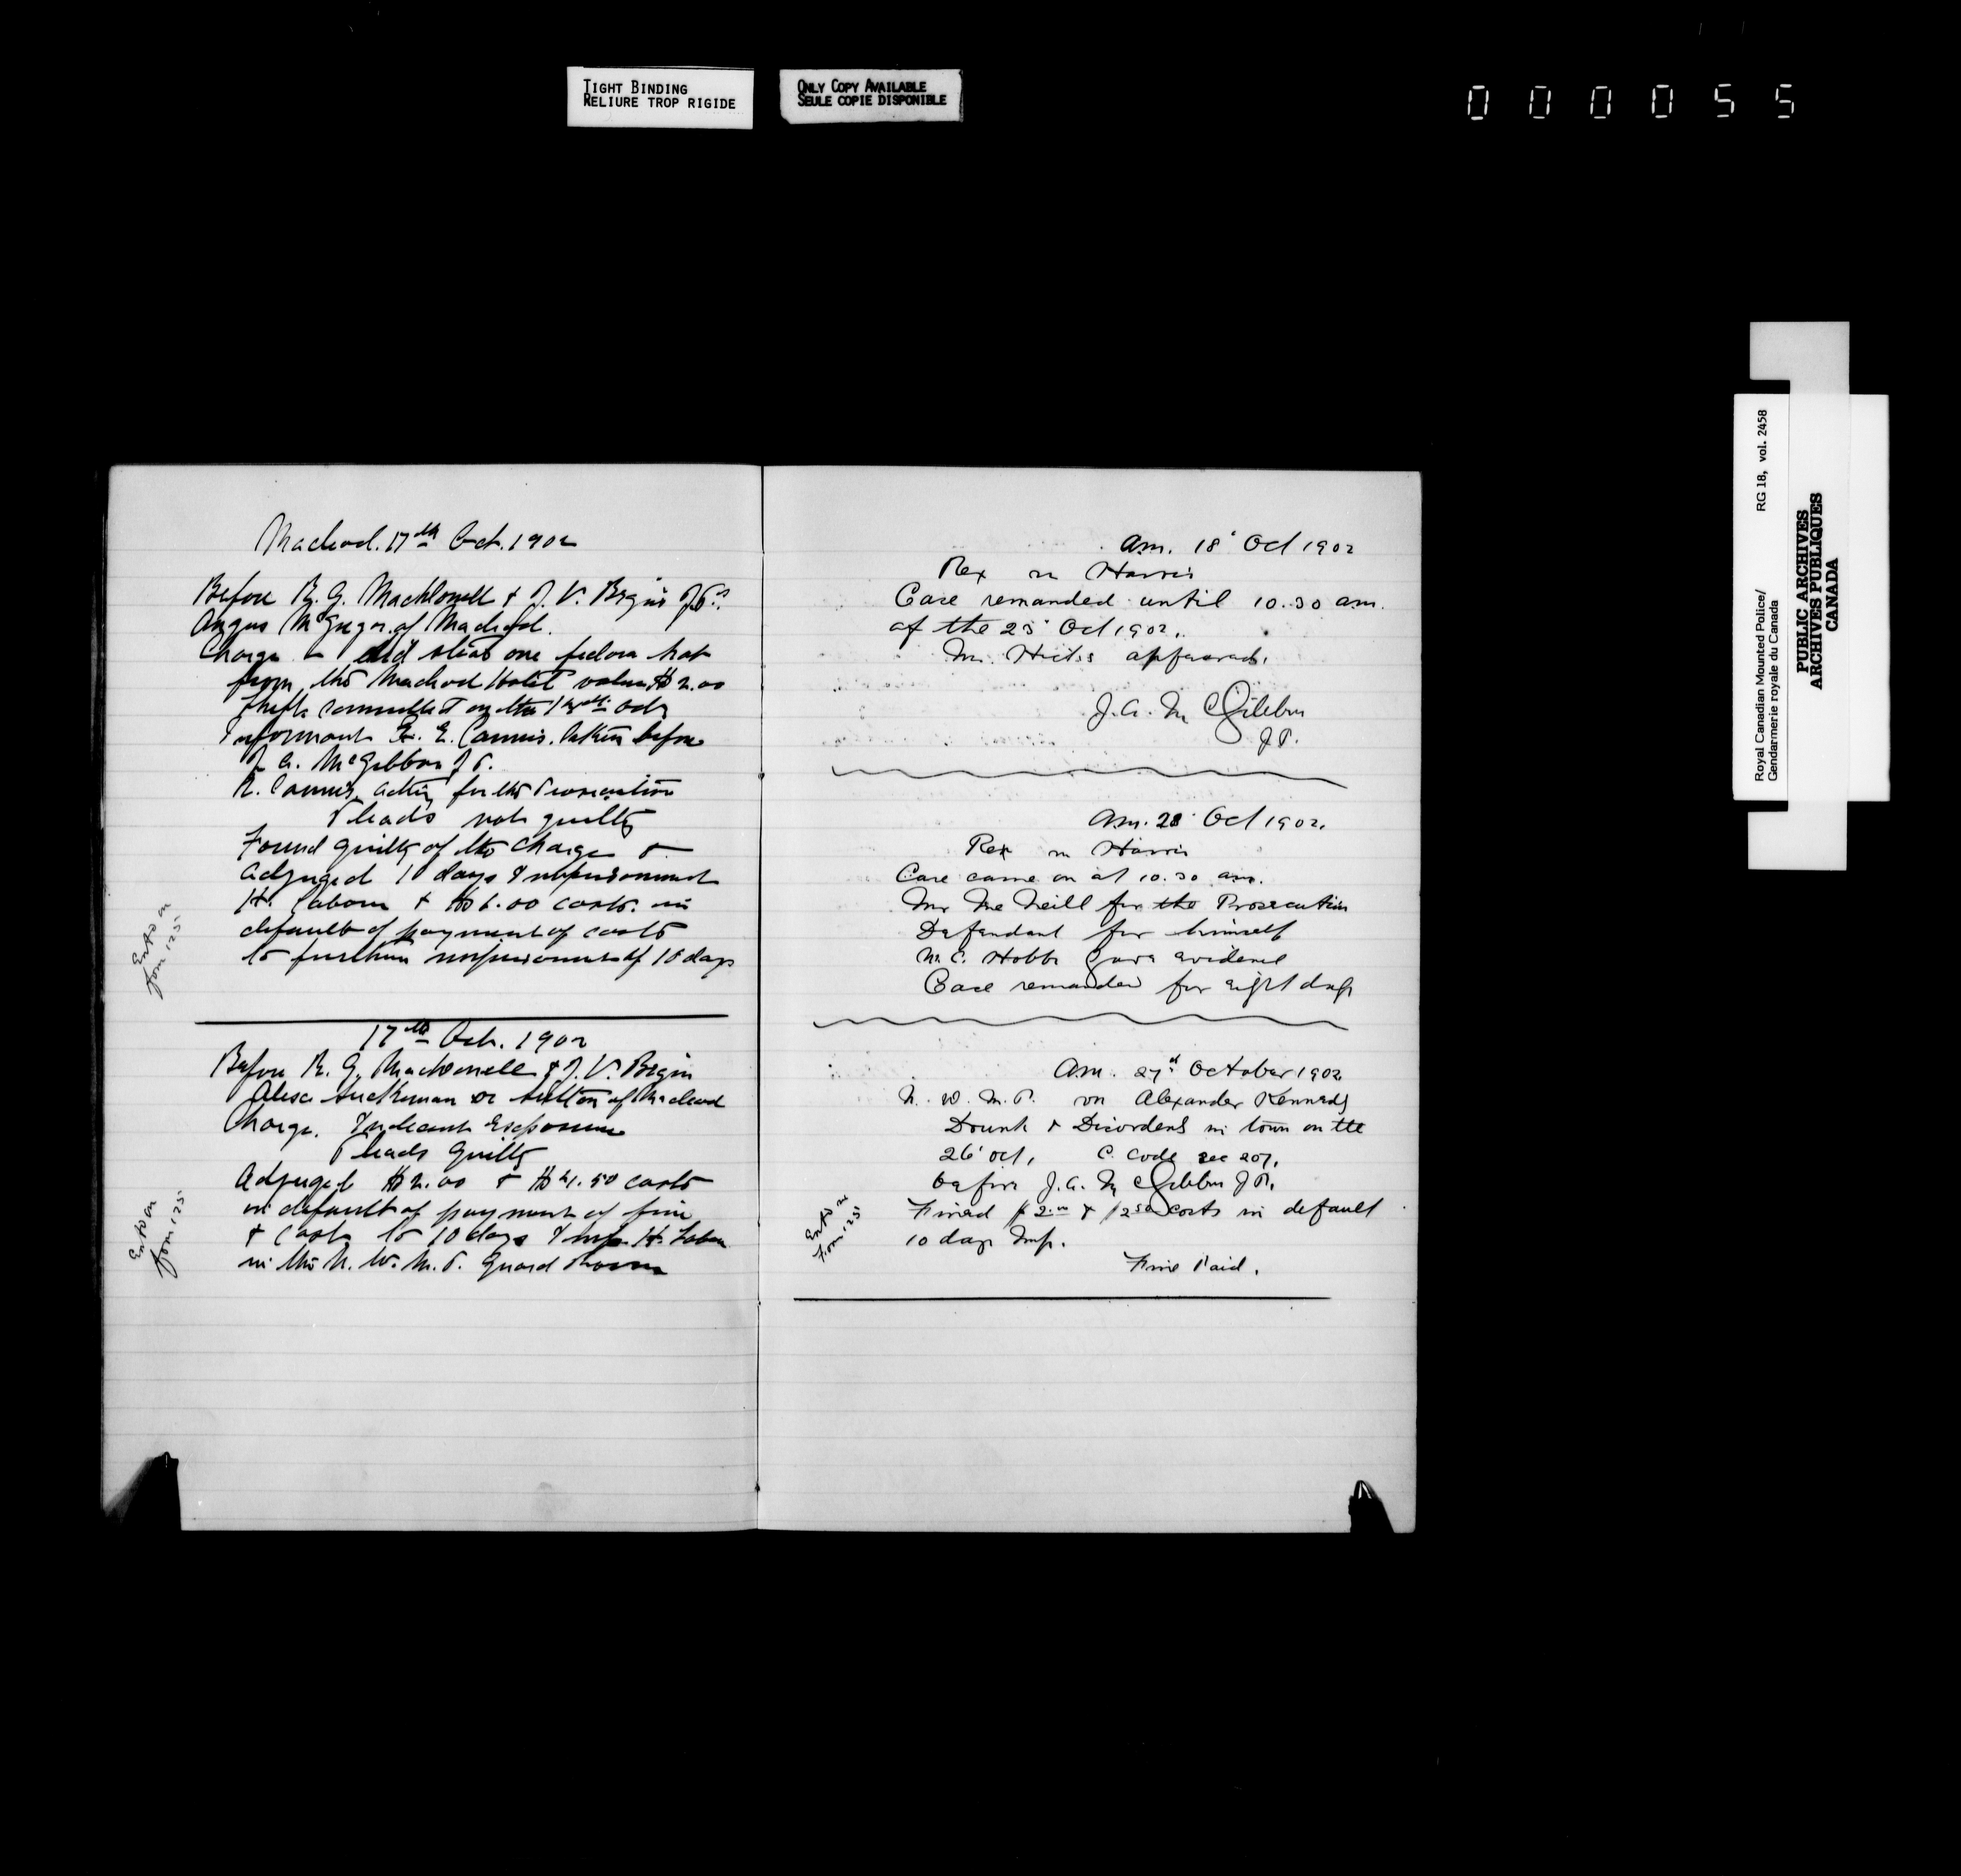 TIGHT BINDING
RELIURE TROP RIGIDE
ONLY COPY AVAILABLE
SEULE COPIE DISPONIBLE
000055
Macleod. 17th Oct. 1902
Before R. G. MacDonell & J. V. Begin J.P.s
Angus McGregor of Macleod.
Charge did steal one fedora hat
from the Macleod Hotel value $2.00
theft committed on the
Informant E. Cannis. taken before
J. A. McGibbon J.P.
R. Cannis acting for the Prosecution
Pleads not guilty
Found guilty of the charge &
Adjuged 10 days Imprisonment
H. Labour & $6.00 costs. in
default of payment of costs
to further imprisonment of 10 days
Entd on
form 125
17th Oct. 1902
Before R. G. MacDonell & J. V. Begin
or Sutton of Macleod
Charge. Indecent Exposure
Pleads Guilty
Adjuged $2.00 & $4.50 costs
in default of payment of fine
& costs to 10 days Imp. H. Labour
in the N. W. M. P. Guard Room
Entd on
form 125
am. 18' Oct 1902
Rex vs Harris
Case remanded until 10.30 am.
of the 23' Oct 1902.
Mr. Hicks appeared.
J. A. McGibbon
J P.
am. 23' Oct 1902.
Rex vs Harris
Case came on at 10.30 am.
Mr McNeill for the Prosecution
Defendant for himself
C. Hobbs gave evidence
Case remanded for eight days
am. 27th October 1902
N. W. M. P. vs Alexander Kennedy
Drunk & Disorderly in town on the
26' Oct, C. Code sec 207.
before J. A. McGibbon J P.
Fined $2.00 & $2.50 costs in default
10 days Imp.
Fine Paid.
Entd on
Form 125
Royal Canadian Mounted Police/
Gendarmerie royale du Canada
RG 18, vol. 2458
PUBLIC ARCHIVES
ARCHIVES PUBLIQUES
CANADA